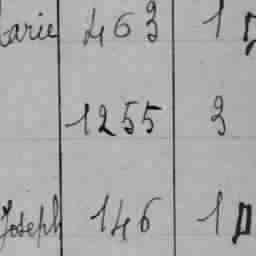 arie 463 1
1255 3
Joseph 146 1